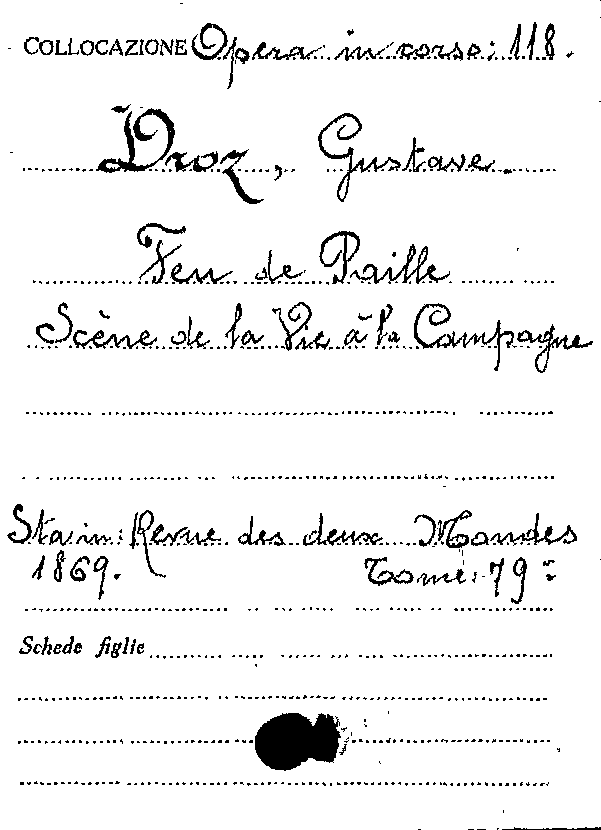 COLLOCAZIONE Opera in corso: 118.
Droz, Gustave.
Feu de Paille
Scène de la Vie à la Campagne
Sta in: Revue des deux Mondes
1869. Tome: 79°
Schede figlie